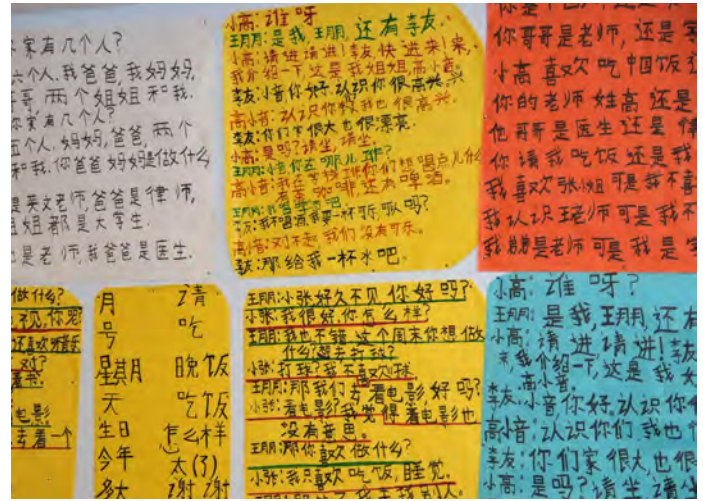 家有几个人?
六个人.我爸爸,我妈妈,
哥,两个姐姐和我.
你家有几个人?
五个人.妈妈,爸爸,两个
和我.你爸爸妈妈是做什么
是英文老师,爸爸是律师,
姐姐都是大学生.
是老师,我爸爸是医生.
小高:谁呀
王朋:是我,王朋,还有李友.
小高:请进请进!李友快进来!来,
我介绍一下这是我姐姐,高小音.
李友:小音你好.认识你很高兴.
高小音:认识你们我也很高兴.
李友:你们家很大也很漂亮.
小高:是吗?请坐,请坐
王朋:小音你在哪儿工作?
高小音:我在学校工作你们想喝点儿什么
咖啡还有啤酒.
王朋:我喝啤酒吧.
李友:我不喝酒我要一杯可乐,可以吗?
高小音:对不起我们没有可乐.
李友:那给我一杯水吧.
你哥哥是老师,还是
小高喜欢吃中国饭还
你的老师姓高还是
他哥哥是医生还是律
你请我吃饭还是我
我喜欢张小姐可是我不喜
我认识王老师可是我不
我弟弟是老师可是我是学
做什么?
视,你呢
还喜欢听音乐
对?
看书.
电影
去看一个
月 请
号 吃
星期 晚饭
天 吃饭
生日 怎么样
今年 太(了)
多大 谢谢
王朋:小张好久不见,你好吗?
小张:我很好,你怎么样?
王朋:我也不错.这个周末你想做
什么?想去打球?
小张:打球?我不喜欢打球.
王朋:那我们去看电影,好吗?
小张:看电影?我觉得看电影也
没有意思。
王朋:那你喜欢做什么?
小张:我只喜欢吃饭,睡觉.
小高:谁呀?
王朋:是我,王朋,还有
小高:请进请进!李友
来,我介绍一下,这是我
高小音.
李友:小音你好.认识你
高小音:认识你们我也
李友:你们家很大,也很
小高:是吗?请坐请坐